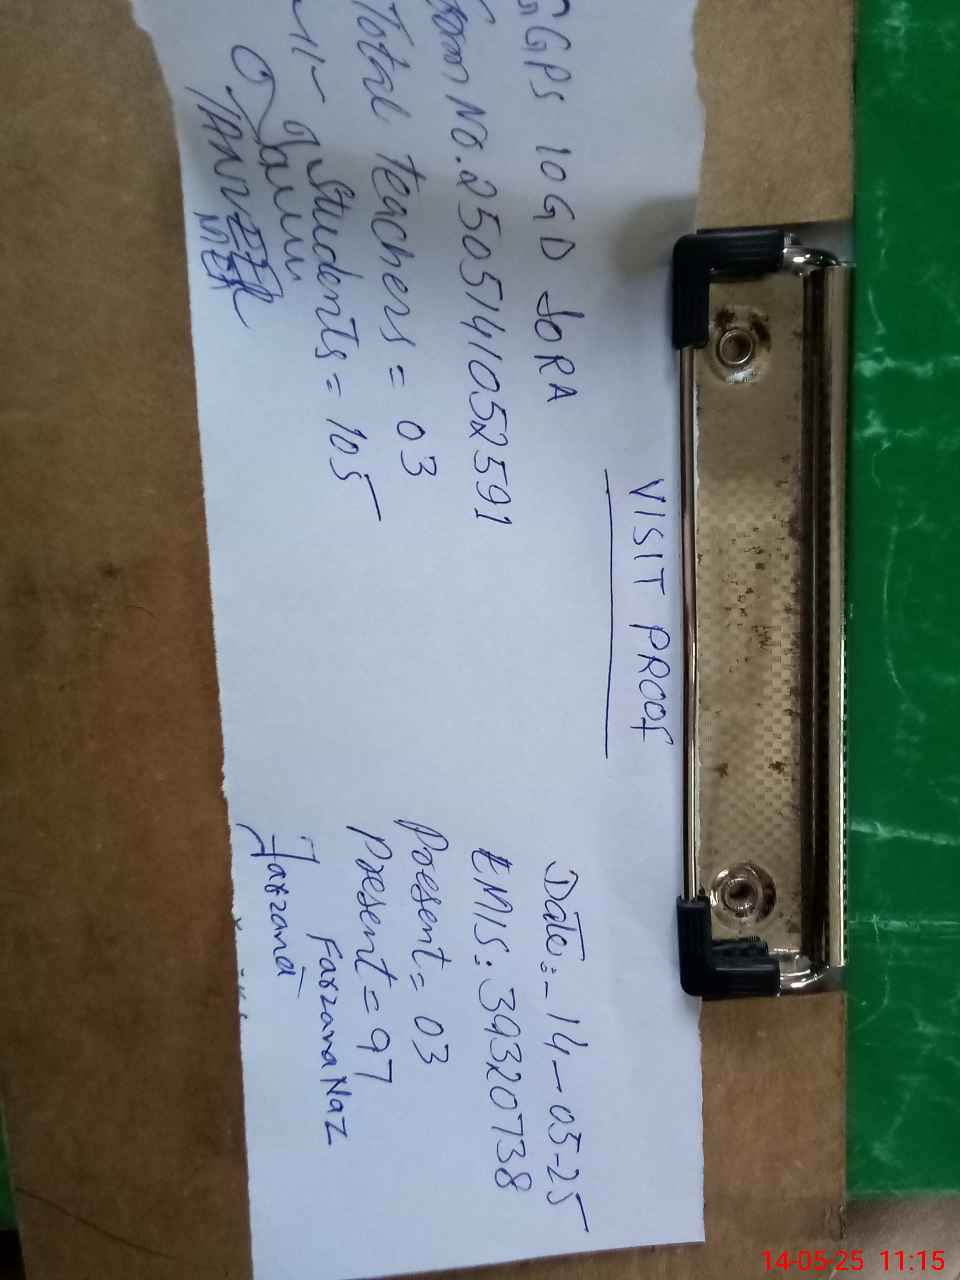 VISIT PROOF
GGPS 10GD JORA
Date:- 14-05-25
No. 2505141052591
EMIS: 39320738
Total teachers = 03
Present = 03
-11- Students = 105
Present = 97
Farzana Naz
Farzana
14-05-25 11:15